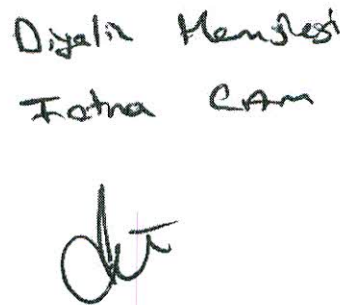 Diyaliz Hemşiresi
Fatma CAM